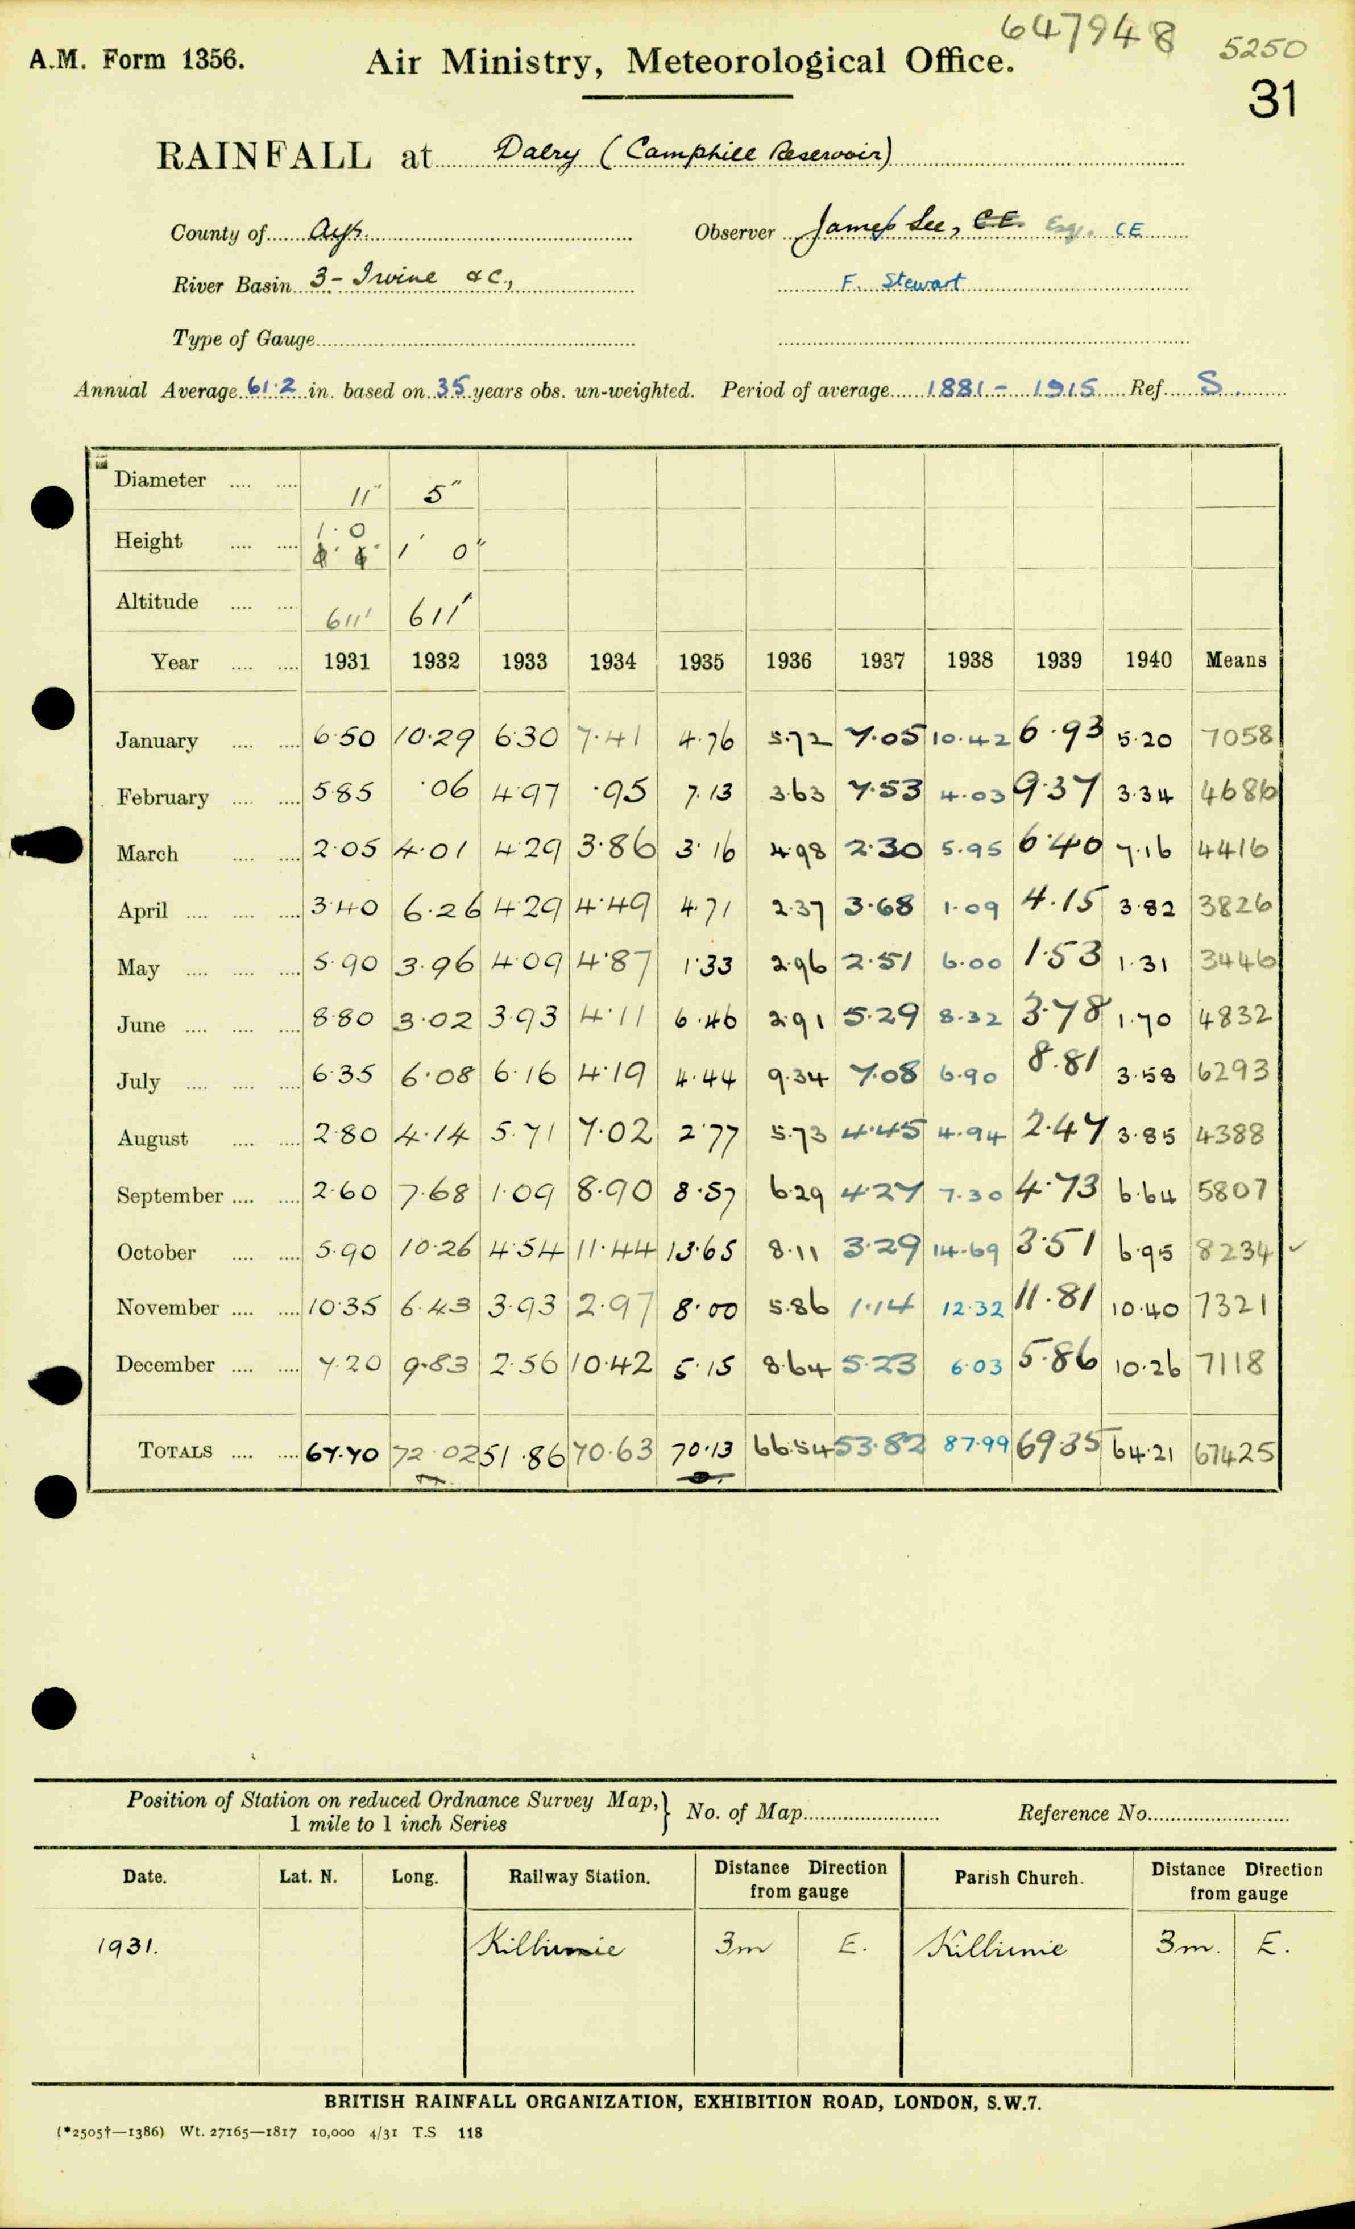 647948
5250
A.M. Form 1356. Air Ministry, Meteorological Office.
31
RAINFALL at Dalry (Camphill Reservoir)
County of Ayr. Observer James Lee, C.E. Esq. CE
River Basin 3 - Irvine &c., F. Stewart
Type of Gauge
Annual Average 61.2 in. based on 35 years obs. un-weighted. Period of average 1881 - 1915 Ref. S.
Diameter 11" 5"
Height 1.0 1' 0"
Altitude 611' 611'
Year 1931 1932 1933 1934 1935 1936 1937 1938 1939 1940 Means
January 6.50 10.29 6.30 7.41 4.76 5.72 7.05 10.42 6.93 5.20 7058
February 5.85 .06 4.97 .95 7.13 3.63 7.53 4.03 9.37 3.34 4686
March 2.05 4.01 4.29 3.86 3.16 4.98 2.30 5.95 6.40 7.16 4416
April 3.40 6.26 4.29 4.49 4.71 2.37 3.68 1.09 4.15 3.82 3826
May 5.90 3.96 4.09 4.87 1.33 2.96 2.51 6.00 1.53 1.31 3446
June 8.80 3.02 3.93 4.11 6.46 2.91 5.29 8.32 3.78 1.70 4832
July 6.35 6.08 6.16 4.19 4.44 9.34 7.08 6.90 8.81 3.58 6293
August 2.80 4.14 5.71 7.02 2.77 5.73 4.45 4.94 2.47 3.85 4388
September 2.60 7.68 1.09 8.90 8.57 6.29 4.27 7.30 4.73 6.64 5807
October 5.90 10.26 4.54 11.44 13.65 8.11 3.29 14.69 3.51 6.95 8234 ✓
November 10.35 6.43 3.93 2.97 8.00 5.86 1.14 12.32 11.81 10.40 7321
December 7.20 9.83 2.56 10.42 5.15 8.64 5.23 6.03 5.86 10.26 7118
TOTALS 67.70 72.02 51.86 70.63 70.13 66.54 53.82 87.99 69.35 64.21 67425
Position of Station on reduced Ordnance Survey Map, } No. of Map Reference No.
1 mile to 1 inch Series
Date. Lat. N. Long. Railway Station. Distance Direction from gauge Parish Church. Distance Direction from gauge
1931. Kilbirnie 3m E. Kilbirnie 3m. E.
BRITISH RAINFALL ORGANIZATION, EXHIBITION ROAD, LONDON, S.W.7.
(*2505†—1386) Wt. 27165—1817 10,000 4/31 T.S 118